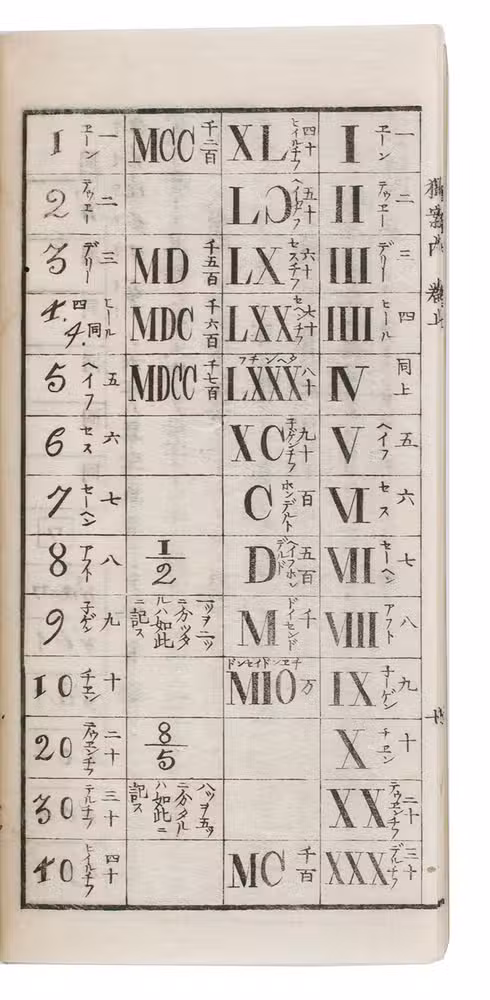 I ヱーン 一
II テウヱー 二
III デリー 三
IIII ヒール 四
IV 同上
V ヘイフ 五
VI セス 六
VII セーヘン 七
VIII アフト 八
IX 子ーゲン 九
X チヱン 十
XX テウヱンチフ 二十
XXX デルチフ 三十
XL ヒイルチフ 四十
LↃ ヘイフチフ 五十
LX セスチフ 六十
LXX セーヘンチフ 七十
LXXX 八十
XC 子ゲンチフ 九十
C ホンデルト 百
D ヘイフホンデルト 五百
M ドイセンド 千
MIO 万
MC 千百
MCC 千二百
MD 千五百
MDC 千六百
MDCC 千七百
1/2
一ッヲ二ッ
ニ分ッタ
ルハ如此
ニ記ス
8/5
八ッヲ五ッ
ニ分タル
ハ如此ニ
記ス
1 ヱーン 一
2 テウヱー 二
3 デリー 三
4. 4. ヒール 四 同
5 ヘイフ 五
6 セス 六
7 セーヘン 七
8 アフト 八
9 子ゲン 九
10 チヱン 十
20 テウヱンチフ 二十
30 デルチフ 三十
40 ヒイルチフ 四十